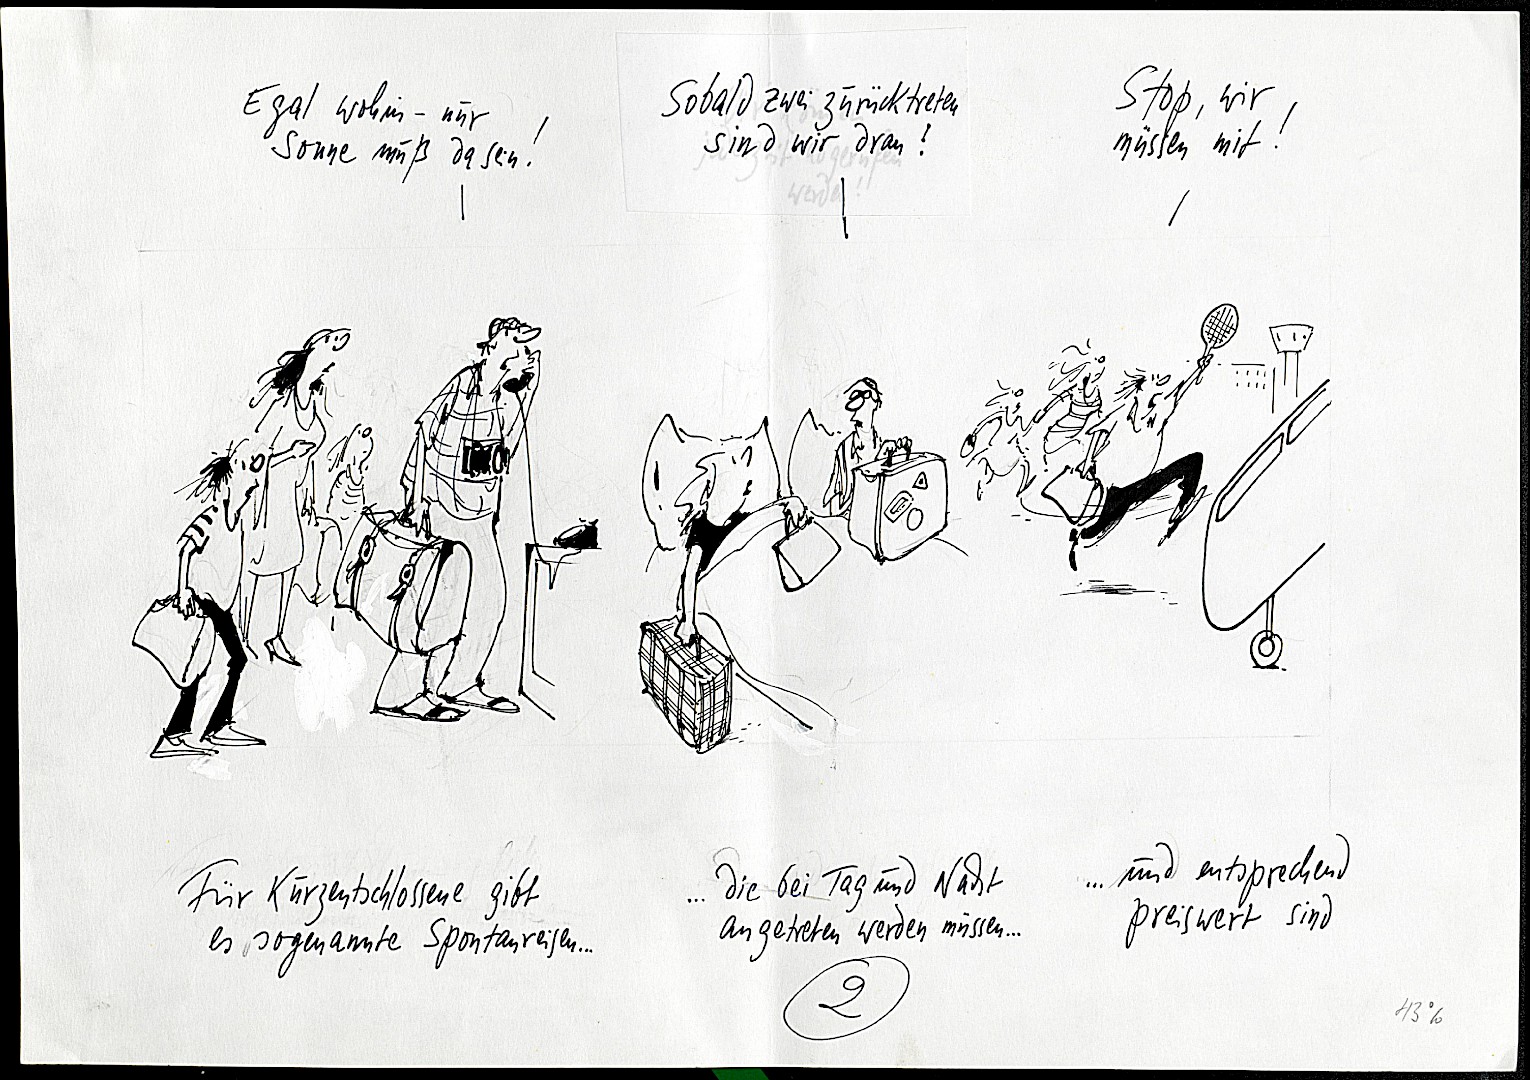 Egal wohin – nur
Sonne muß da sein!
Sobald zwei zurücktreten
sind wir dran!
Stop, wir
müssen mit!
Für Kurzentschlossene gibt
es sogenannte Spontanreisen...
... die bei Tag und Nacht
angetreten werden müssen...
... und entsprechend
preiswert sind
2
43%